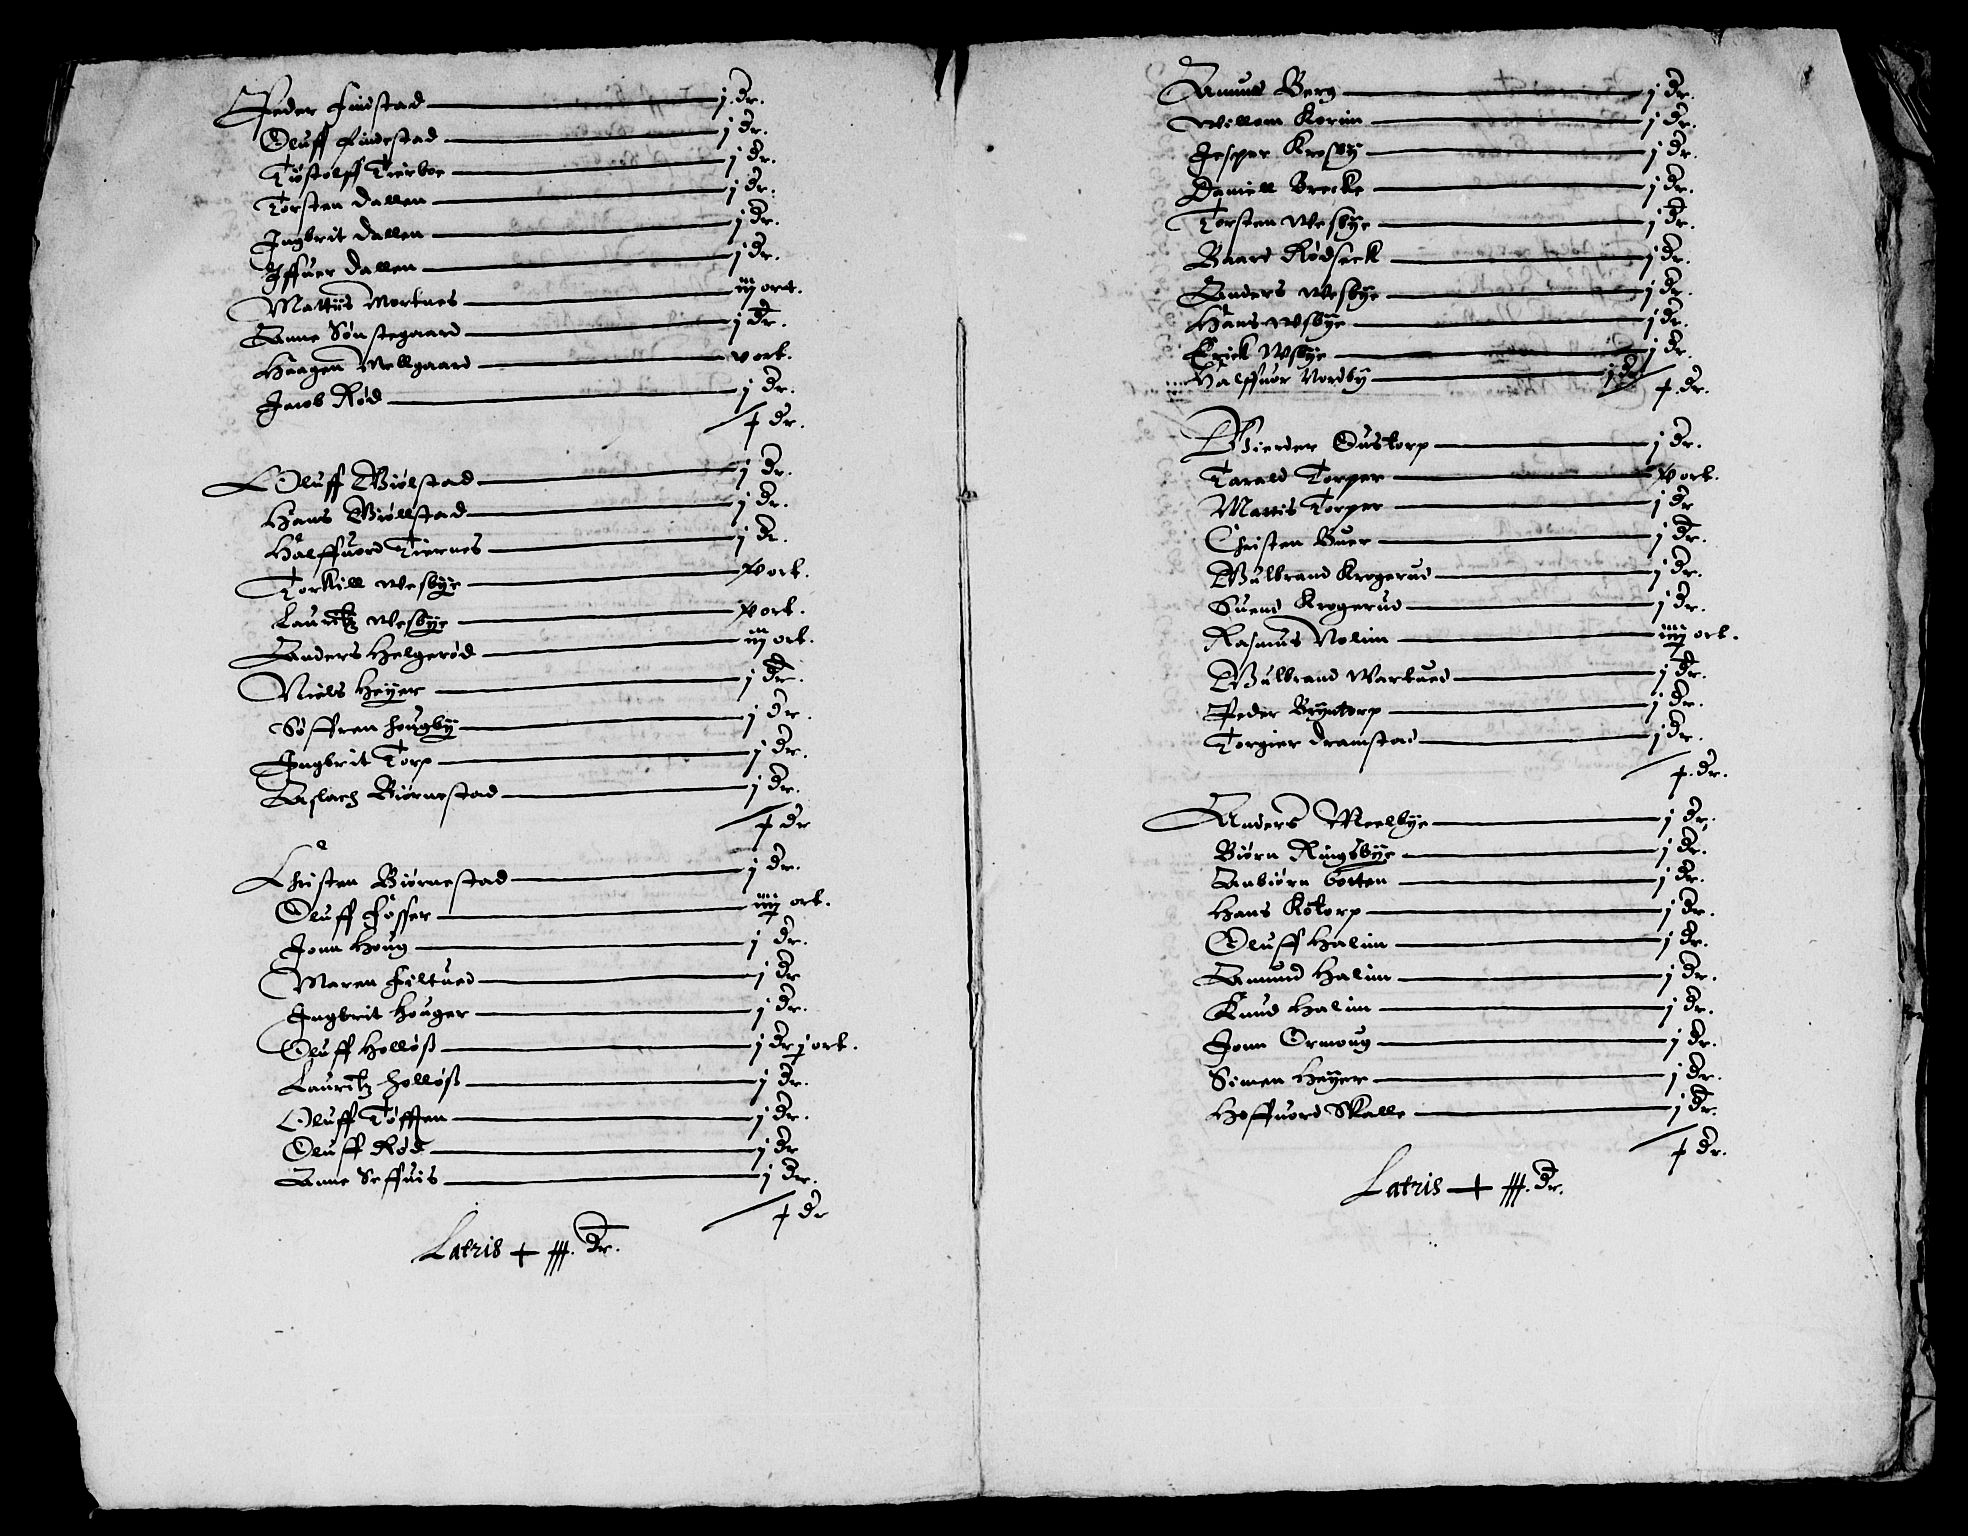 Peder Findstad — j. dr.
Oluff Findestad — j dr.
Tostolff Tierboe — j dr.
Torsten Dallen — j dr.
Ingbrit Dallen — j dr.
Iffuer Dallen — j dr.
Mattiis Mortnes — iij ort.
Anne Sønstegaard — j dr.
Haagen Mellgaard — v ort.
Jacob Rød — j dr.
x dr.
Oluff Biølstad — j dr.
Hans Biøllstad — j dr.
Halffuord Tiernes — j dr.
Torkill Wesbye — v ort.
Lauritz Wesbye — v ort.
Anders Helgerød — iij ort.
Niels Heyer — j dr.
Søffren Hougby — j dr.
Ingbrit Torp — j dr.
Aslach Biørnestad — j dr.
x dr
Christen Biørnestad — j dr.
Oluff Fosser — iiij ort.
Jonn Houg — j dr.
Maren Filtued — j dr
Ingbrit Houger — j dr.
Oluff Holløß — j dr j ort.
Lauritz Holløß — j dr.
Oluff Tøfften — j dr.
Oluff Rød — j dr
Anne Seffuis — j dr.
x dr
Latris xxx dr.
Amund Berg — j dr.
Willom Korim — j dr.
Jesper Krosby — j dr.
Daniell Brecke — j dr.
Torsten Wesbye — j dr.
Baard Rødseck — j dr.
Anders Wesbye — j dr.
Hans Wsbye — j dr.
Erick Wsbye — j dr.
Halffuor Nordby — j dr
x dr.
Gierder Oustorp — j dr.
Tarald Torper — v ort.
Mattis Torper — j dr
Christen Buer — j dr.
Gulbrand Krogerud — j dr.
Suend Krogerud — j dr.
Rasmus Nolim — iiij ort.
Gulbrand Wartued — j dr.
Peder Bryntorp — j dr.
Torgier Dramstad — j dr.
x dr.
Anders Meelbye — j dr.
Biørn Ringsbye — j dr.
Anbiørn Botten — j dr.
Hans Kotorp — j dr.
Oluff Halim — j dr.
Amund Halim — j dr.
Knud Halim — j dr.
Jonn Ormoug — j dr.
Simen Heyer — j dr.
Hoffuord Skalle — j dr.
x dr.
Latris — xxx. dr.